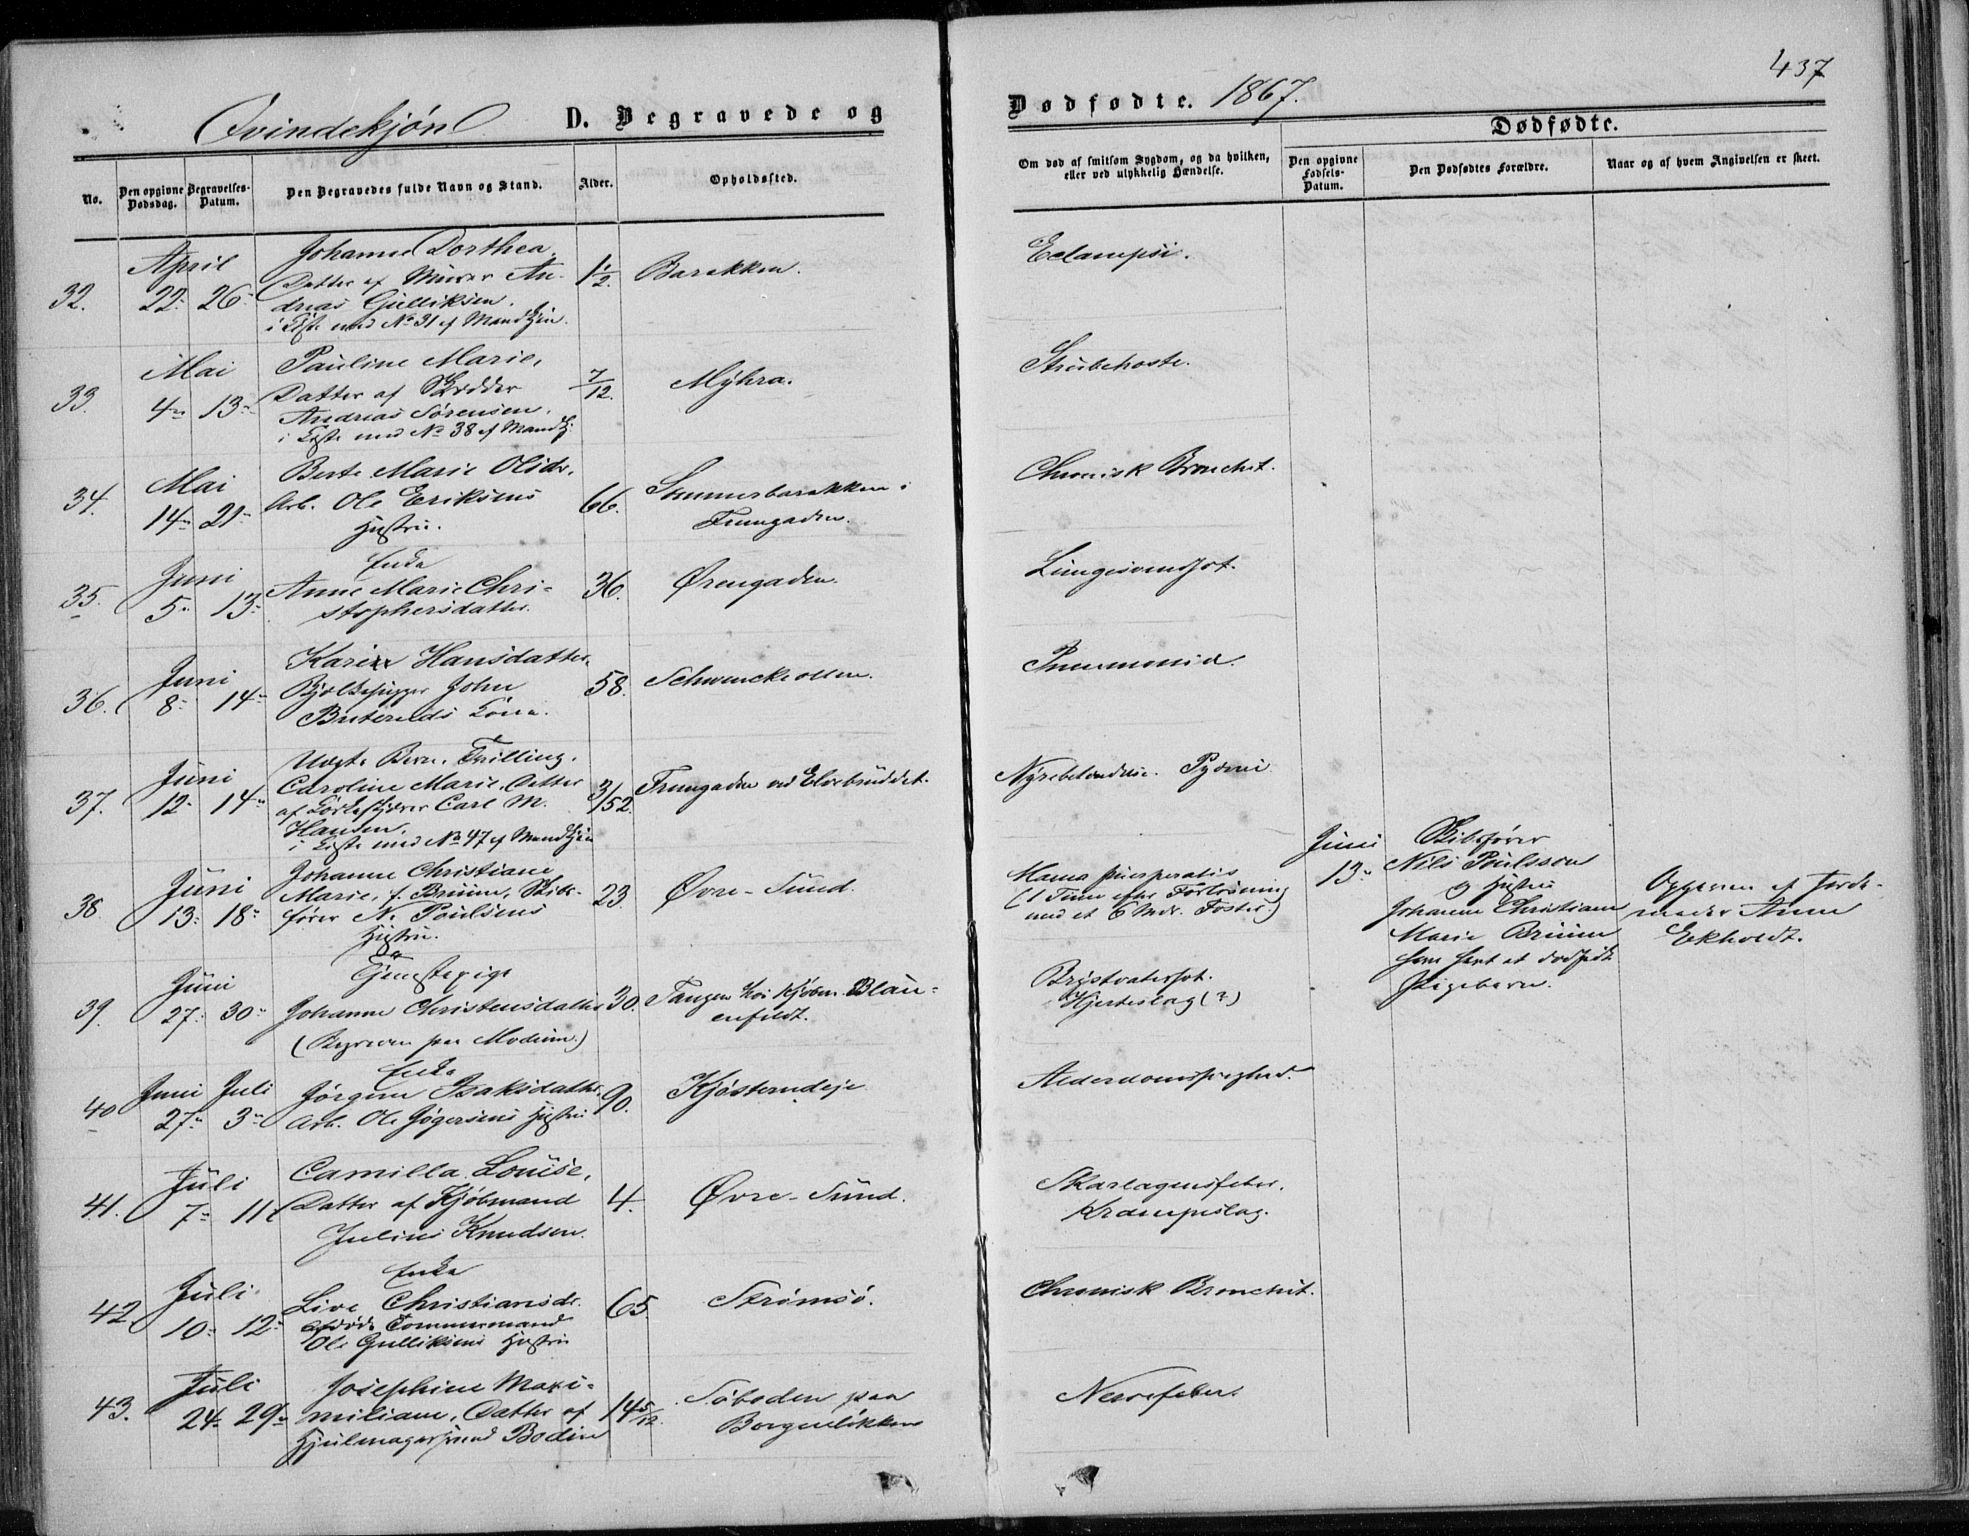 437
Qvindekjøn D. Begravede og
Dødfødte. 1867.
No.
Den opgivne Dødsdag.
Begravelses-Datum.
Den Begravedes fulde Navn og Stand.
Alder.
Opholdssted.
Om død af smitsom Sygdom, og da hvilken, eller ved ulykkelig Hændelse.
Dødfødte.
Den opgivne Fødsels-Datum.
Den Dødfødtes Forældre.
Naar og af hvem Angivelsen er skeet.
32.
April
22. 26
Johanne Dorthea,
Datter af Murer An-
dreas Gulliksen.
i Kiste med No 31 af Mandkjøn.
1 1/2
Barakken.
Eclampsi.
33.
Mai
4 13
Pauline Marie,
Datter af Skrædder
Andreas Sørensen.
i Kiste med No 38 af Mandkj.
7/12.
Myhra.
Strubehoste.
34.
Mai
14 21
Berte Marie Olsdr.
Arb. Ole Eriksens
Hustru.
66.
Sommerbarakken i
Tromgaden.
Chronisk Bronchit.
35.
Juni
5 13
Enke
Anne Marie Chri-
stophersdatter.
36.
Ørengaden.
Lungesvindsot.
36.
Juni
8 14
Karine Hansdatter,
John
Kone.
58.
Schwenckeollen.
Pneumonia.
37.
Juni
12 14
Uægte Barn. Trilling.
Caroline Marie, Datter
af Carl M.
Hansen.
i Kiste med No 47 af Mandkjøn
3/52.
Tromgaden ved Elvebruddet.
Nyrebetændelse. Pyæmi
38.
Juni
13 18
Johanne Christiane
Marie, f. Bruun, Skibs-
fører N. Paulsens
Hustru.
23.
Øvre-Sund.
Mania puerperalis
(1 Time efter Forløsning
med et 6 Mdr. Foster.)
Juni
13
Skibsfører
Nils Poulsson
og Hustru
Johanne Christiane
Marie Bruun
som født et dødfødt
Pigebarn.
Opgiven af Jorde-
moder Anne
Eekholdt.
39.
Juni
27. 30
Tjenestepige
Johanne Christensdatter
(Begraven paa Modum.)
30.
Tangen hos Kjøbm. Blau-
enfeldt.
Brystvatersot.
Hjerteslag (?)
40
Juni Juli
27 3
Enke
Jørgine Isaksdatter,
Arb. Ole Jøgersens Hustru
90.
Kjøsterudeje
Alderdomssvaghed.
41.
Juli
7 11
Camilla Louise,
Datter af Kjøbmand
Julius Knudsen.
4.
Øvre-Sund.
Skarlagensfeber.
Krampeslag.
42
Juli
10 12
Enke
Live Christiansdr.
afdøde Tømmermand
Ole Gulliksens Hustru
65.
Strømsø.
Chronisk Bronchit.
43.
Juli
24. 29
Josephine Maxi-
miliane, Datter af
Hjulmagersvend Bodin
14 5/12.
Søboden paa
Borgenløkken
Nervefeber.